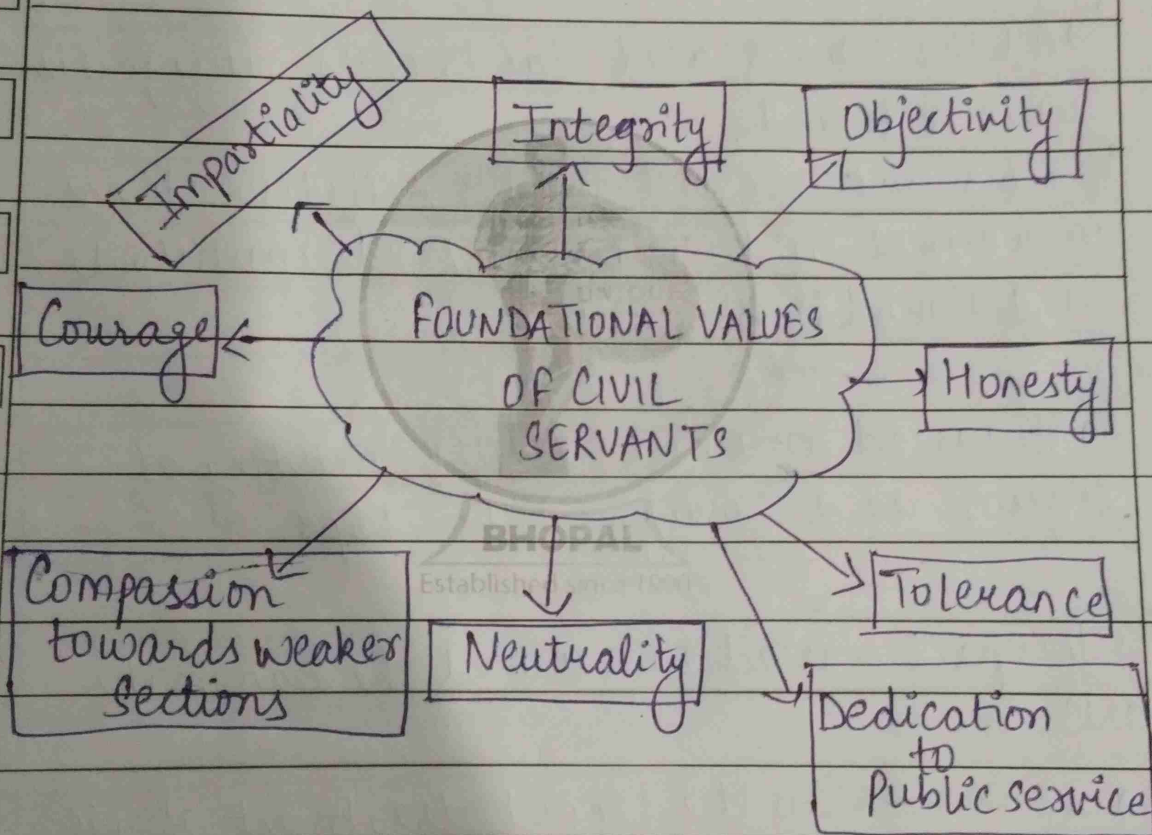 Impartiality
Integrity
Objectivity
Courage
FOUNDATIONAL VALUES
OF CIVIL
SERVANTS
Honesty
BHOPAL
Established since 1990
Compassion
towards weaker
Sections
Neutrality
Tolerance
Dedication
to
Public service